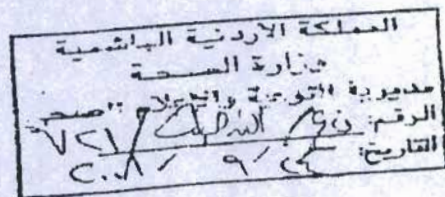 المملكة الأردنية الهاشمية
وزارة الصحة
مديرية التوعية والإعلام الصحي
الرقم:
التاريخ: ٢٤ / ٩ / ٢٠٠٨